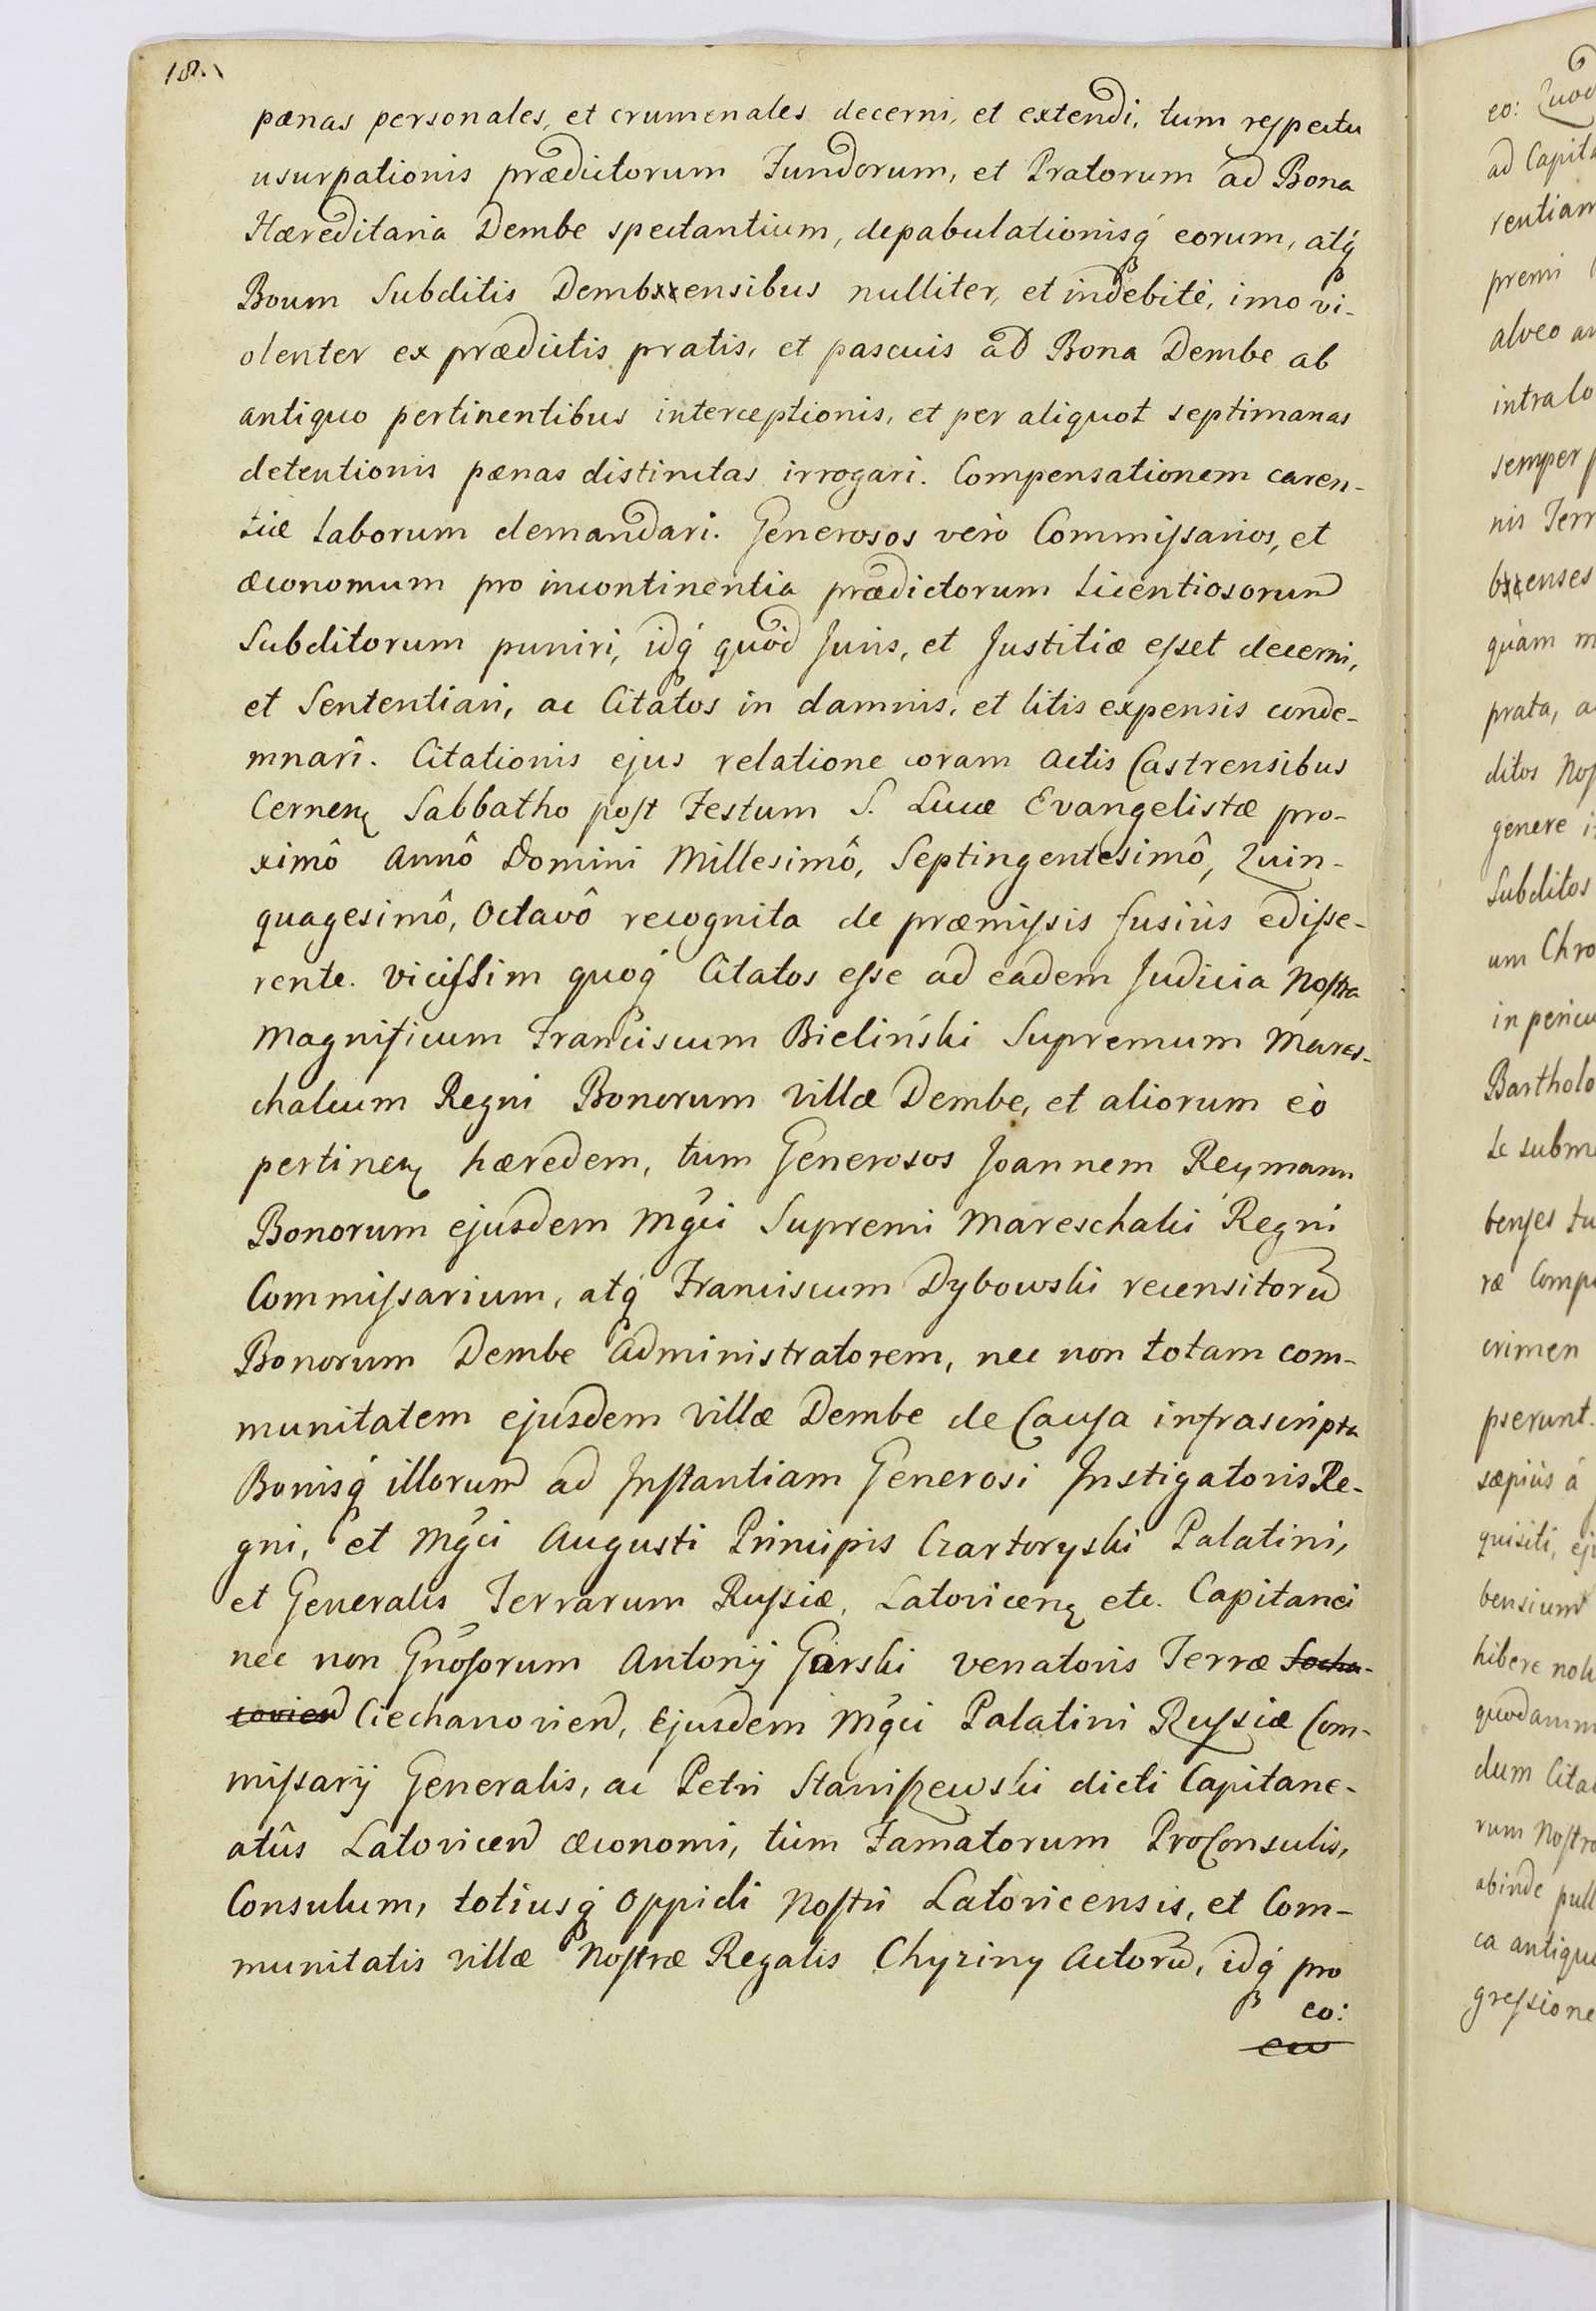 18.
pænas personales, et crumenales decerni, et extendi, tum respectu
usurpationis prædictorum Fundorum, et Pratorum ad Bona
Hæreditaria Dembe spectantium, depabulationisq́ eorum, atq́
Boum Subditis Dembxxensibus nulliter, et indebitè, imo vi-
olenter ex prædictis pratis, et pascuis ad Bona Dembe ab
antiquo pertinentibus interceptionis, et per aliquot septimanas
detentionis pænas distinctas irrogari. Compensationem caren-
tiæ Laborum demandari. Generosos verò Commissarios, et
œconomum pro incontinentia prædictorum Licentiosorum
Subditorum puniri, idq́ quòd Juris, et Justitiæ esset decerni,
et Sententiari, ac Citatos in damnis, et litis expensis conde-
mnari. Citationis ejus relatione coram Actis Castrensibus
Cernen Sabbatho post Festum S. Lucæ Evangelistæ pro-
ximô Annô Domini Millesimô, Septingentesimô, Quin-
quagesimô, Octavô recognita de præmissis fusiùs edisse-
rente. Vicissim quoq́ Citatos esse ad eadem Judicia Nostra
Magnificum Franciscum Bieliński Supremum Mares-
chalcum Regni Bonorum Villæ Dembe, et aliorum eò
pertinen hæredem, tum Generosos Joannem Reymann
Bonorum ejusdem Mgci Supremi Mareschalci Regni
Commissarium, atq́ Franciscum Dybowski recensitorū
Bonorum Dembe Administratorem, nec non totam com-
munitatem ejusdem Villæ Dembe de Causa infrascripta
Bonisq́ illorum ad Instantiam Generosi Instigatoris Re-
gni, et Mgci Augusti Principis Czartoryski Palatini,
et Generalis Terrarum Russiæ, Latovicen etc. Capitanei
nec non Gnosorum Antonij Garski Venatoris Terræ Socha-
covien Ciechanovien, Ejusdem Mgci Palatini Russiæ Com-
missarij Generalis, ac Petri Staniszewski dicti Capitane-
atûs Latovicen œconomi, tùm Famatorum ProConsulis,
Consulum, totiusq́ Oppidi Nostri Latovicensis, et Com-
munitatis villæ Nostræ Regalis Chyziny Actorū, idq́ pro
eo: